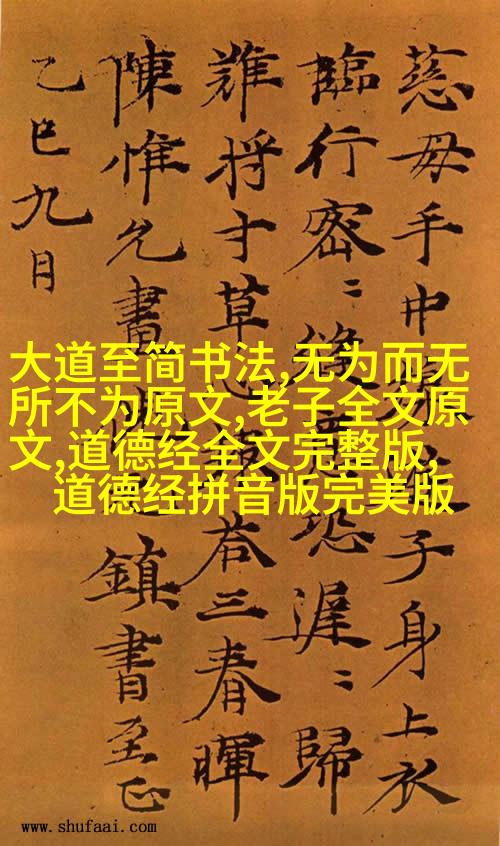 慈母手中子身上衣
臨行密〻縫意恐遲〻歸
難将寸草心答三春暉
陳惟允書鎮書至正
乙巳九月
大道至简书法,无为而无
所不为原文,老子全文原
文,道德经全文完整版,
道德经拼音版完美版
www.shufaai.com